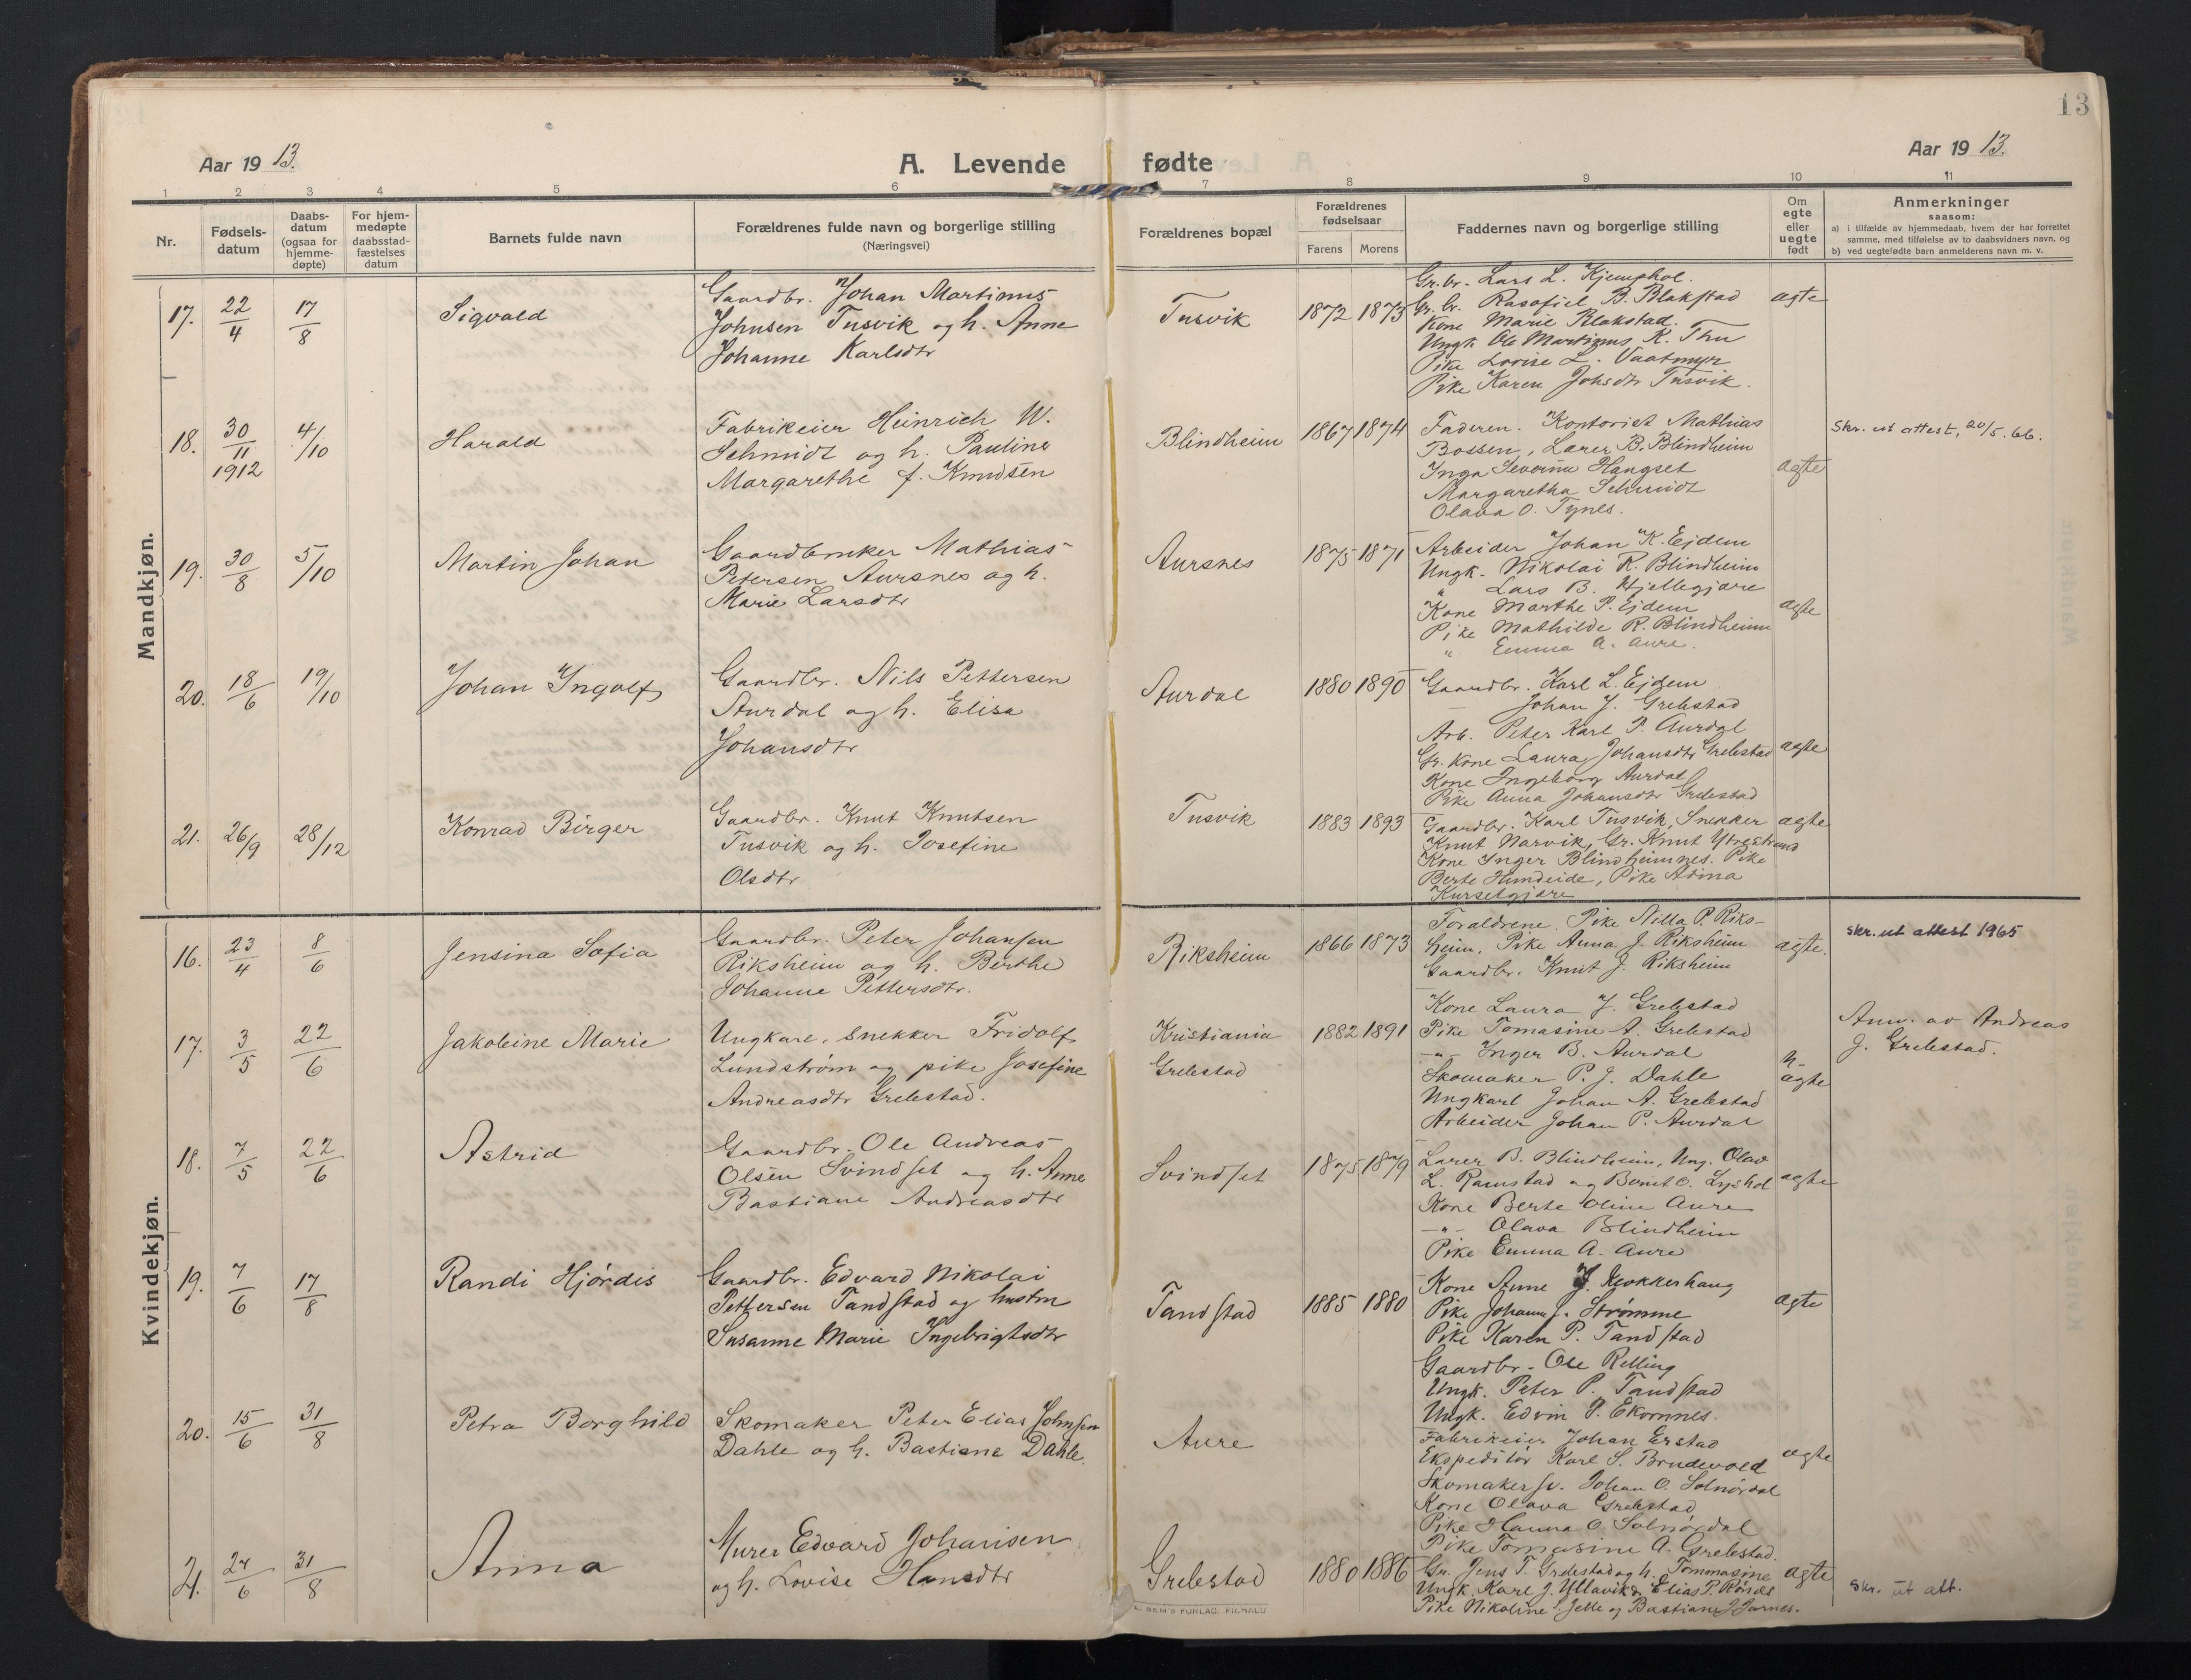 13
Aar 1913.
A. Levende fødte
Aar 1913.
1 2 3 4 5 6 7 8 9 10 11
Nr.
Fødsels-
datum
Daabs-
datum
(ogsaa for
hjemme-
døpte)
For hjem-
medøpte
daabsstad-
fæstelses
datum
Barnets fulde navn
Forældrenes fulde navn og borgerlige stilling
(Næringsvei)
Forældrenes bopæl
Forældrenes
fødselsaar
Farens Morens
Faddernes navn og borgerlige stilling
Om
egte
eller
uegte
født
Anmerkninger
saasom:
a) i tilfælde av hjemmedaab, hvem der har forrettet
samme, med tilføielse av to daabsvidners navn, og
b) ved uegtefødte barn anmelderens navn m. v.
Mandkjøn.
17. 22/4 17/8 Sigvald
Gaardbr. Johan Martinus
Johnsen Tusvik og h. Anne
Johanne Karlsdtr
Tusvik 1872 1873
Gr.br. Lars L. Kjemphol.
Gr. br. Rasofiel B. Blakstad
Kone Marie Blakstad.
Ungk. Ole Martinus K. Thu
Pike Lovise L. Vaatmyr
Pike Karen Johsdtr Tusvik.
ægte
18. 30/11 1912 4/10 Harald
Fabrikeier Heinrich W.
Schmidt og h. Pauline
Margarethe f. Knudsen
Blindheim 1867 1874
Faderen. Kontorist Mathias
Bossen, Lærer B. Blindheim
Inga Severine Hangset
Margaretha Schmidt
Olava O. Tynes.
ægte
Skr. ut attest, 20/5. 66.
19. 30/8 5/10 Martin Johan
Gaardbruker Mathias
Petersen Aursnes og h.
Marie Larsdtr
Aursnes 1875 1871
Arbeider Johan K. Ejdem
Ungk. Nikolai R. Blindheim
" Lars B. Hjellegjære
Kone Marthe P. Ejdem
Pike Mathilde R. Blindheim
" Emma A. Aure.
ægte
20. 18/6 19/10 Johan Ingolf
Gaardbr. Nils Pettersen
Aurdal og h. Elisa
Johansdtr
Aurdal 1880 1890
Gaardbr. Karl L. Ejdem
— Johan J. Grebstad
Arb. Peter Karl P. Aurdal
Gr. Kone Laura Johansdtr Grebstad
Kone Ingeborg Aurdal
Pike Anna Johansdtr Grebstad
ægte
21. 26/9 28/12 Konrad Birger
Gaardbr. Knut Knutsen
Tusvik og h. Josefine
Olsdtr
Tusvik 1883 1893
Gaardbr. Karl Tusvik, Snekker
Knut Narvik, Gr. Knut Ytrestrand
Kone Inger Blindheimnes. Pike
Berte Hundeide, Pike Adina
Kursetgjære
ægte
Kvindekjøn.
16. 23/4 8/6 Jensina Sofia
Gaardbr. Peter Johansen
Riksheim og h. Berthe
Johanne Pettersdtr.
Riksheim 1866 1873
Forældrene. Pike Nilla P. Riks-
heim, Pike Anna J. Riksheim
Gaardbr. Knut J. Riksheim
ægte.
skr. ut attest 1965
17. 3/5 22/6 Jakobine Marie
Ungkare, snekker Fridolf
Lundstrøm og pike Josefine
Andreasdtr Grebstad.
Kristiania
Grebstad
1882 1891
Kone Laura J. Grebstad
Pike Tomasine A. Grebstad
-"- Inger B. Aurdal
Skomaker P. J. Dahle
Ungkarl Johan A. Grebstad
Arbeider Johan P. Aurdal
u-
ægte
Anm. av Andreas
J. Grebstad.
18. 7/5 22/6 Astrid
Gaardbr. Ole Andreas
Olsen Svindset og h. Anne
Bastiane Andreasdtr
Svindset 1875 1879
Lærer B. Blindheim, Ung. Olav
L. Ramstad og Bernt O. Lyshol
Kone Berte Oline Aure
-"- Olava Blindheim
Pike Emma A. Aure
ægte
19. 7/6 17/8 Randi Hjørdis
Gaardbr. Edvard Nikolai
Pettersen Tandstad og hustru
Susanne Marie Ingebrigtsdtr
Tandstad 1885 1880
Kone Anne J. Klokkerhaug
Pike Johanne J. Strømme
Pike Karen P. Tandstad
Gaardbr. Ole Relling
Ungk. Peter P. Tandstad
Ungk. Edvin P. Ekornnes.
ægte
20. 15/6 31/8 Petra Borghild
Skomaker Peter Elias Johnsen
Dahle og h. Bastiane Dahle.
Aure
Fabrikeier Johan Erstad
Ekspeditør Karl S. Brudevold
Skomakersv. Johan O. Solnørdal
Kone Olava Grebstad
Pike Hanna O. Solnørdal
Pike Tomasine A. Grebstad.
ægte
21. 24/6 31/8 Anna
Murer Edvard Johansen
og h. Lovise Hansdtr
Grebstad 1880 1886
Gr. Jens T. Grebstad og h. Tommasine
Ungk. Karl J. Yttavik & Elias P.
Pike Nikoline Jelle og Bastiane J. Jarnes.
ægte
skr. ut att.